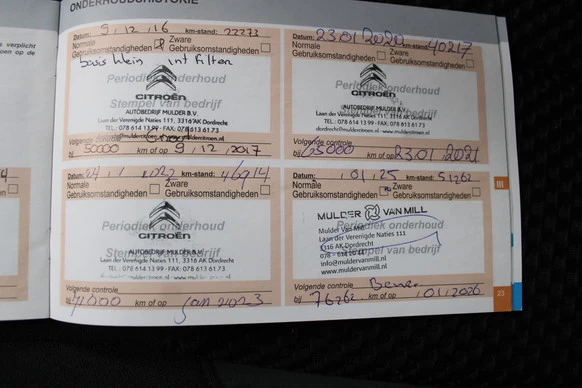 ONDERHOUDSHISTORIE
Datum: 9, 12, 16 km-stand: 22273
Normale Gebruiksomstandigheden Zware Gebruiksomstandigheden
basis klein int filter
Periodiek onderhoud
CITROËN
Stempel van bedrijf
AUTOBEDRIJF MULDER B.V.
Laan der Verenigde Naties 111, 3316 AK Dordrecht
TEL.: 078 614 13 99 - FAX: 078 613 61 73
dordrecht@muldercitroen.nl - www.muldercitroen.nl
Volgende controle
bij 50000 km of op 9, 12, 2017
Datum: 23.01.2020 km-stand: 40217
Normale Gebruiksomstandigheden Zware Gebruiksomstandigheden
Periodiek onderhoud
CITROËN
Stempel van bedrijf
AUTOBEDRIJF MULDER B.V.
Laan der Verenigde Naties 111, 3316 AK Dordrecht
TEL.: 078 614 13 99 - FAX: 078 613 61 73
dordrecht@muldercitroen.nl - www.muldercitroen.nl
Volgende controle
bij 65000 km of op 23.01.2021
Datum: km-stand: 46914
Normale Gebruiksomstandigheden Zware Gebruiksomstandigheden
Periodiek onderhoud
CITROËN
Stempel van bedrijf
AUTOBEDRIJF MULDER B.V.
Laan der Verenigde Naties 111, 3316 AK Dordrecht
TEL.: 078 614 13 99 - FAX: 078 613 61 73
Volgende controle
bij 71000 km of op Jan 2023
Datum: 01/25 km-stand: 51262
Normale Gebruiksomstandigheden Zware Gebruiksomstandigheden
MULDER VAN MILL
Periodiek onderhoud
Mulder Van Mill
Laan der Verenigde Naties 111
3316 AK Dordrecht
Stempel van bedrijf
info@muldervanmill.nl
www.muldervanmill.nl
Volgende controle
bij 76262 km of op 01/2026
III
23